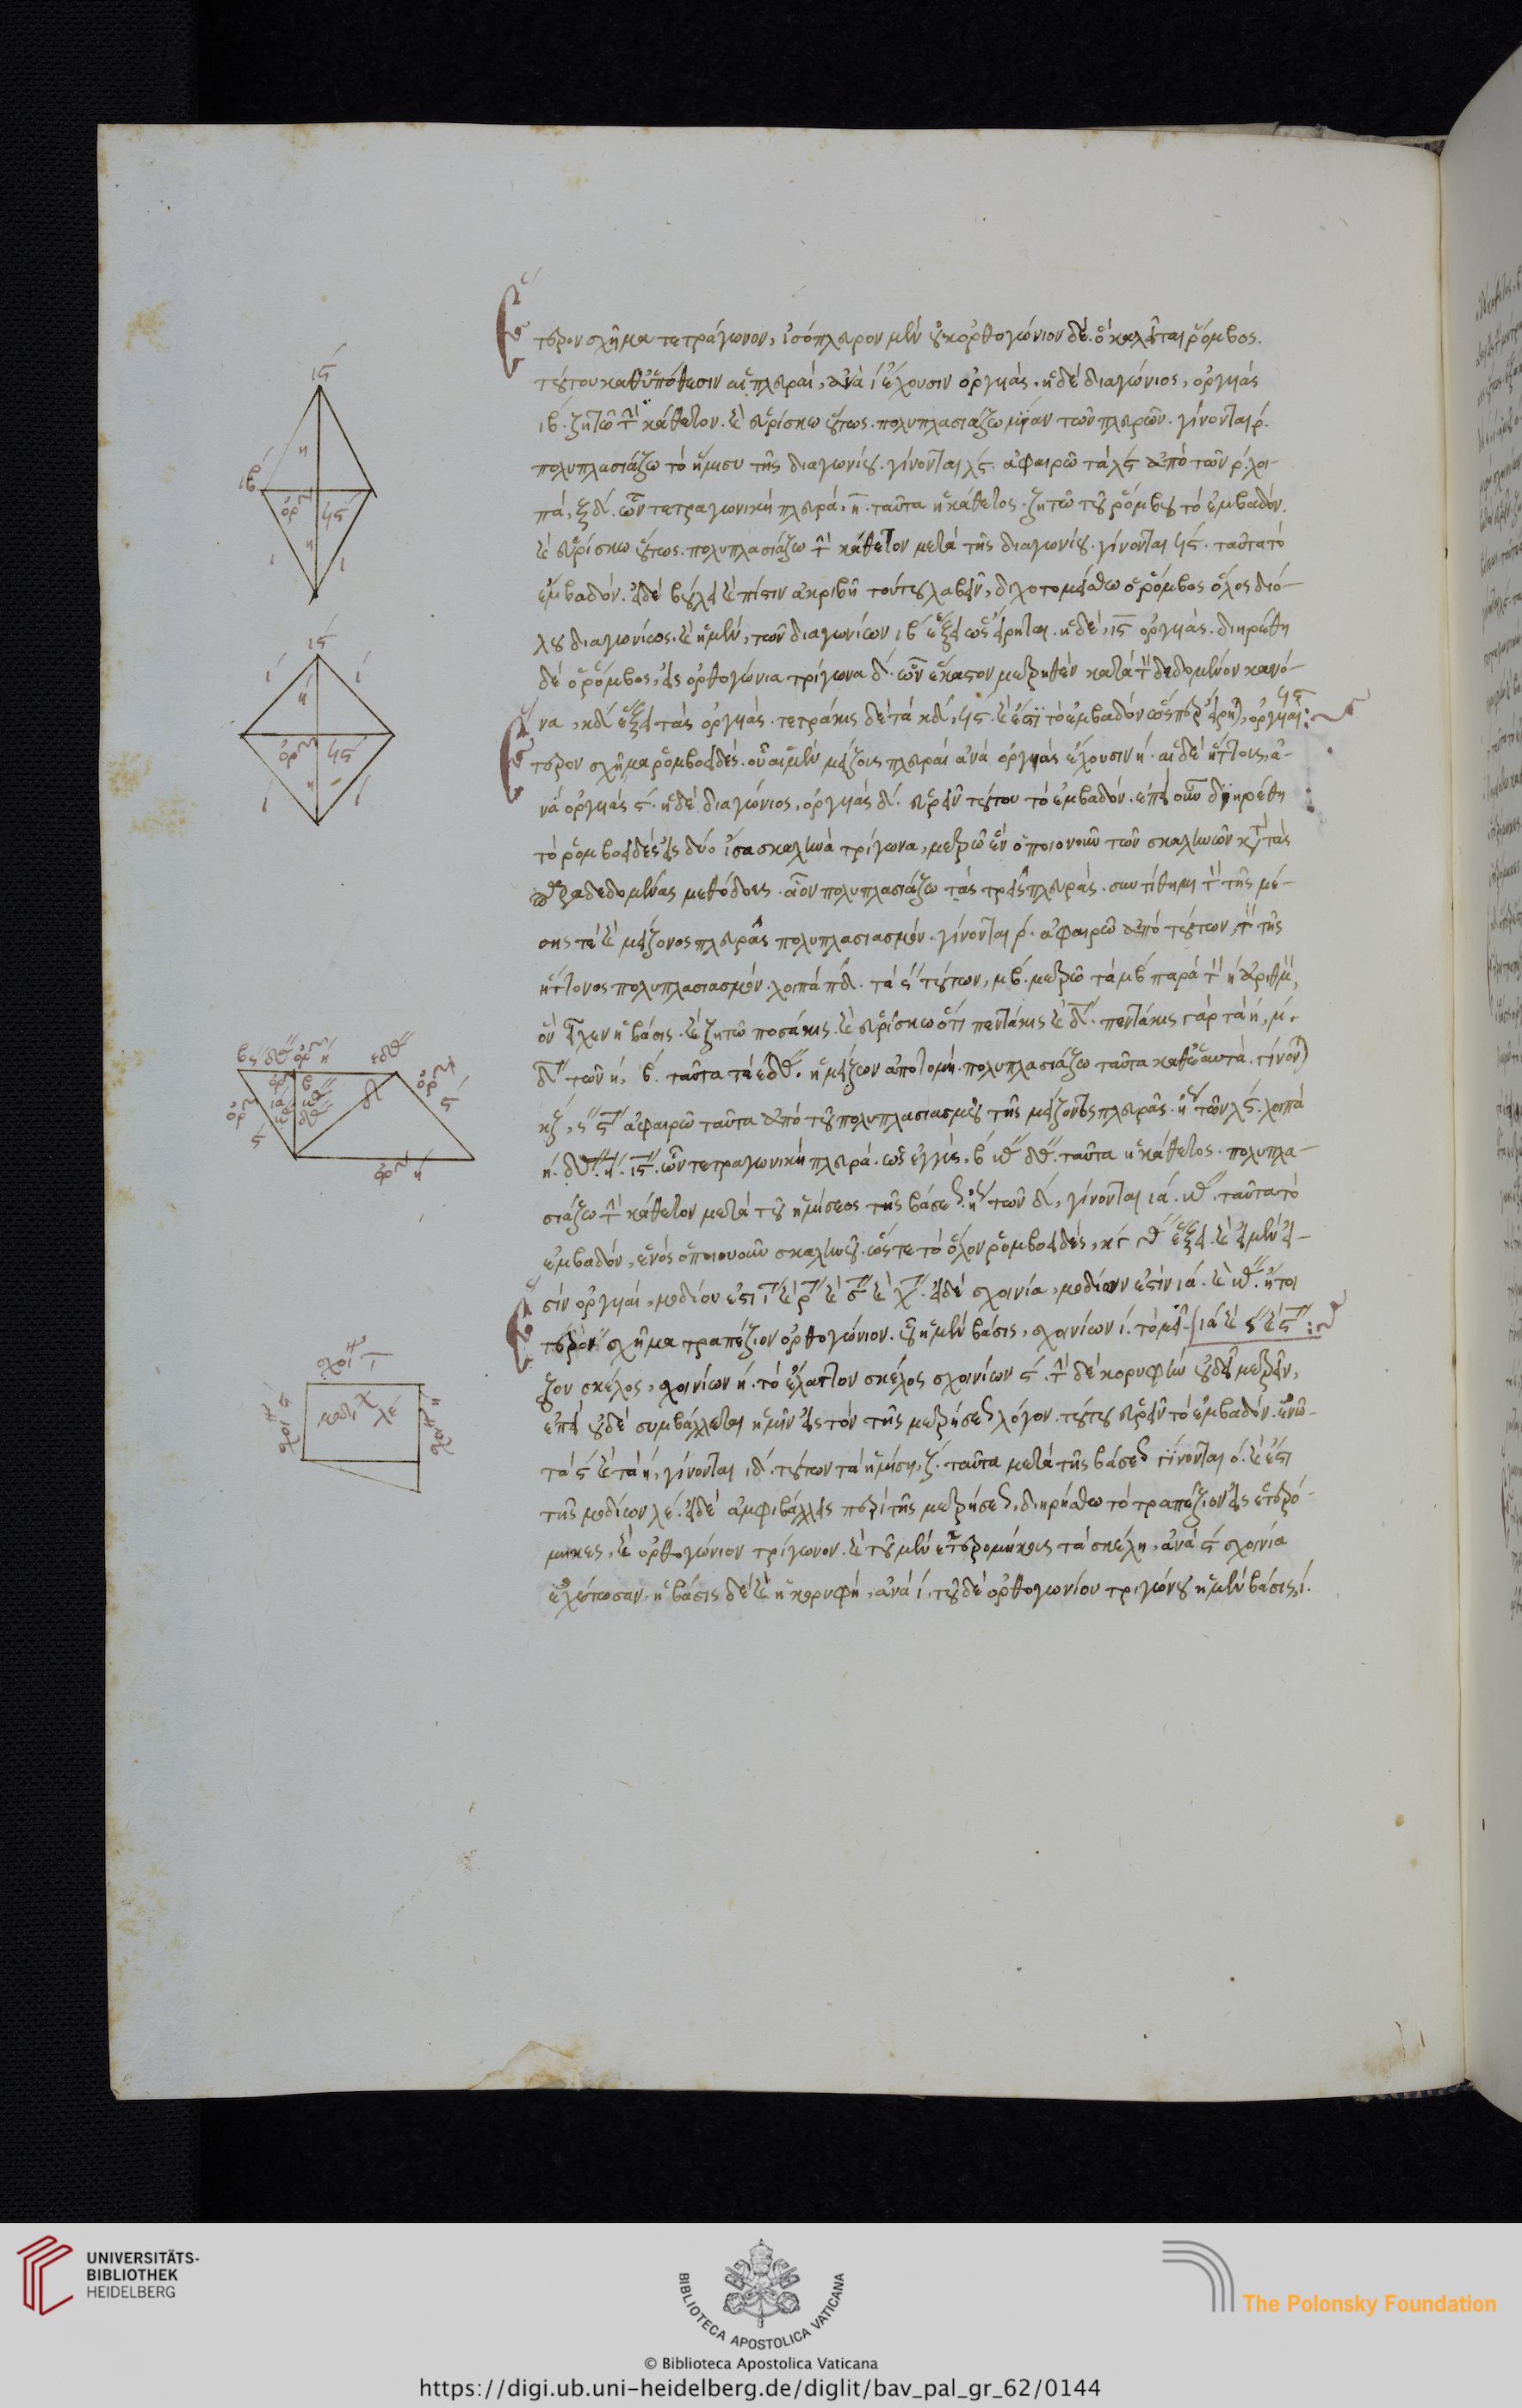 ἕτερον σχῆμα τετράγωνον, ἰσόπλευρον μὲν οὐκ ὀρθογώνιον δέ. ὃ καλεῖται ῥόμβος.
τούτου καθ' ὑπόθεσιν αἱ πλευραὶ, ἀνὰ ι ἔχουσιν ὀργυιάς. ἡ δὲ διαγώνιος, ὀργυιὰς
ιβ. ζητῶ τὴν κάθετον. καὶ εὑρίσκω οὕτως. πολυπλασιάζω μίαν τῶν πλευρῶν. γίνονται ρ.
πολυπλασιάζω τὸ ἥμισυ τῆς διαγωνίου. γίνονται λϛ. ἀφαιρῶ τὰ λϛ ἀπὸ τῶν ρ. λοι-
πά, ξδ. ὧν τετραγωνικὴ πλευρά, η. ταῦτα ἡ κάθετος. ζητῶ τοῦ ῥόμβου τὸ ἐμβαδόν.
καὶ εὑρίσκω οὕτως. πολυπλασιάζω τὴν κάθετον μετὰ τῆς διαγωνίου. γίνονται ϟϛ. ταῦτα τὸ
ἐμβαδόν. εἰ δὲ βούλει καὶ πίστιν ἀκριβῆ τούτου λαβεῖν, διχοτομείσθω ὁ ῥόμβος ὅλος διό-
λου διαγωνίως. καὶ ἡ μὲν, τῶν διαγωνίων ιβ ἕξει ὡς εἴρηται. ἡ δὲ, ιϛ ὀργυιάς. διηρέθη
δὲ ὁ ῥόμβος, εἰς ὀρθογώνια τρίγωνα δ. ὧν ἕκαστον μετρηθὲν κατὰ τὸν δεδομένον κανό-
να, κδ ἕξει τὰς ὀργυιάς. τετράκις δὲ τὰ κδ, ϟϛ. καὶ ἔστι τὸ ἐμβαδὸν ὥσπερ εἴρηται, ὀργυιαὶ ϟϛ:
ἕτερον σχῆμα ῥομβοειδές. οὗ αἱ μὲν μείζους πλευραὶ ἀνὰ ὀργυιὰς ἔχουσιν η. αἱ δὲ ἥττους, ἀ-
νὰ ὀργυιὰς ϛ. ἡ δὲ διαγώνιος, ὀργυιὰς δ. εὑρεῖν τούτου τὸ ἐμβαδόν. ἐπεὶ οὖν διηρέθη
τὸ ῥομβοειδὲς εἰς δύο ἴσα σκαληνὰ τρίγωνα, μετρῶ ἓν ὁποιονοῦν τῶν σκαληνῶν κατὰ τὰς
δεδομένας μεθόδους. πολυπλασιάζω τὰς τρεῖς πλευράς. συντίθημι τὸν τῆς μέ-
σης τὲ καὶ μείζονος πλευρᾶς πολυπλασιασμόν. γίνονται ρ. ἀφαιρῶ ἀπὸ τούτων, τὸν τῆς
ἥττονος πολυπλασιασμόν. λοιπὰ πδ. τὰ ϛʹʹ τούτων, μβ. μετρῶ τὰ μβ παρὰ τὸν η ἀριθμὸν,
ὃν εἶχεν ἡ βάσις. καὶ ζητῶ ποσάκις. καὶ εὑρίσκω ὅτι πεντάκις καὶ δʹʹ. πεντάκις γὰρ τὰ η, μ.
δʹʹ τῶν η, β. ταῦτα τὰ ε δʹʹ. ἡ μείζων ἀποτομή. πολυπλασιάζω ταῦτα καθ' ἑαυτά. γίνονται
κζ, ϛʹʹ ιϛʹʹ ἀφαιρῶ ταῦτα ἀπὸ τοῦ πολυπλασιασμοῦ τῆς μείζονος πλευρᾶς. ἤγουν τῶν λϛ. λοιπὰ
η. δʹʹ. ηʹʹ. ιϛʹʹ. ὧν τετραγωνικὴ πλευρά. ὡς ἔγγιστα, β ιθʹʹ δʹʹ. ταῦτα ἡ κάθετος. πολυπλα-
σιάζω τὴν κάθετον μετὰ τοῦ ἡμίσεος τῆς βάσεως. ἤγουν τῶν δ, γίνονται ια. ιθʹʹ. ταῦτα τὸ
ἐμβαδόν, ἑνὸς ὁποιουοῦν σκαληνοῦ. ὥστε τὸ ὅλον ῥομβοειδές, κγ ἕξει. καὶ εἰ μὲν εἰ-
σὶν ὀργυιαί, μοδίου ἐστὶ ιʹʹ καὶ ρʹʹ καὶ σʹʹ καὶ χʹʹ. εἰ δὲ σχοινία, μοδίων ἐστὶν ια. καὶ ιθʹʹ. ἤτοι
ἕτερον σχῆμα τραπέζιον ὀρθογώνιον. οὗ ἡ μὲν βάσις, σχοινίων ι. τὸ μεῖ- ια καὶ ϛʹʹ καὶ ϛʹʹ:
ζον σκέλος, σχοινίων η. τὸ ἔλαττον σκέλος σχοινίων ϛ. τὴν δὲ κορυφὴν οὐ δεῖ μετρεῖν,
ἐπεὶ οὐδὲ συμβάλλεται ἡμῖν εἰς τὸν τῆς μετρήσεως λόγον. τούτου εὑρεῖν τὸ ἐμβαδόν. ἑνῶ-
τὰ ϛ καὶ τὰ η, γίνονται ιδ. τούτων τὰ ἡμίση, ζ. ταῦτα μετὰ τῆς βάσεως γίνονται ο. καὶ ἔστι
τῆς μοδίων λε. εἰ δὲ ἀμφιβάλλεις περὶ τῆς μετρήσεως, διηρήσθω τὸ τραπέζιον εἰς ἑτερό-
μηκες, καὶ ὀρθογώνιον τρίγωνον. καὶ τοῦ μὲν ἑτερομήκους τὰ σκέλη, ἀνὰ ϛ σχοινία
ἐχέτωσαν. ἡ βάσις δὲ καὶ ἡ κορυφή, ἀνὰ ι. τοῦ δὲ ὀρθογωνίου τριγώνου ἡ μὲν βάσις, ι.
ιϛ
η
ιβ
ὀρ ϟϛ
η
ι ι
ιϛ
ι ι
η
ὀρ ϟϛ
η
ι ι
ὀρ η
ε δʹʹ
ὀρ ϛ
δ
ὀρ ϛ
ὀρ η
σχοι ι
σχοι ϛ
μοδ λε
σχοι η
UNIVERSITÄTS-
BIBLIOTHEK
HEIDELBERG
BIBLIOTECA APOSTOLICA VATICANA
The Polonsky Foundation
© Biblioteca Apostolica Vaticana
https://digi.ub.uni-heidelberg.de/diglit/bav_pal_gr_62/0144